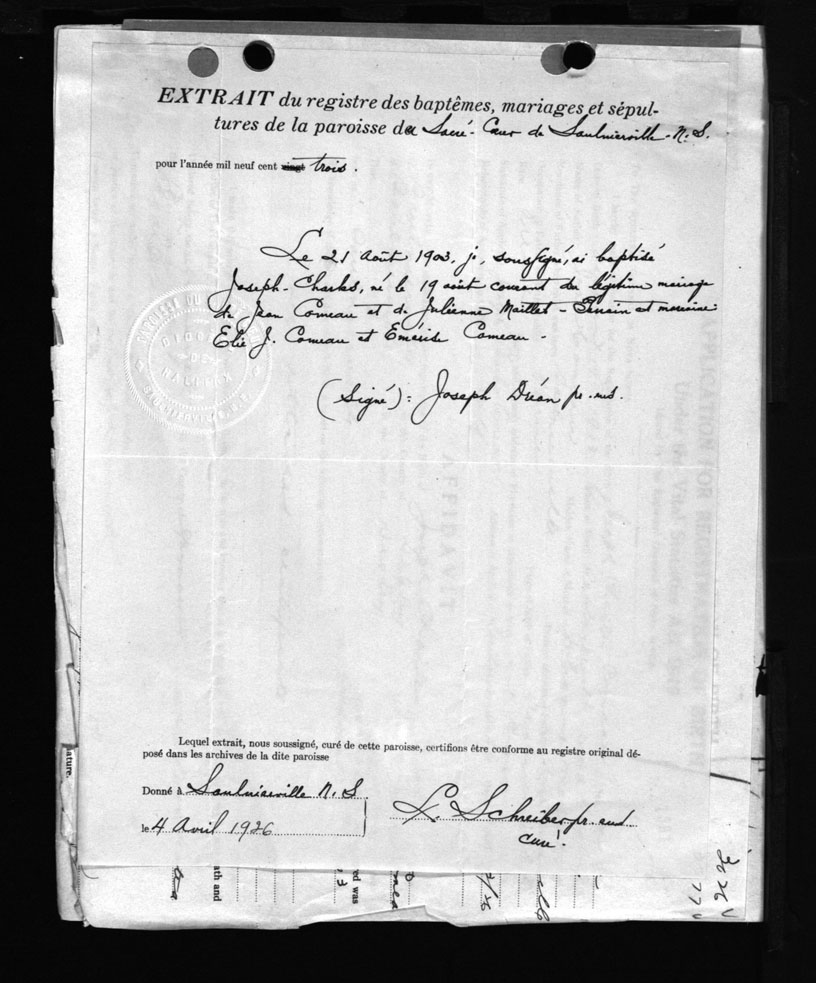 EXTRAIT du registre des baptêmes, mariages et sépul-
tures de la paroisse du Sacré-Cœur de Saulnierville - N. S.
pour l'année mil neuf cent vingt trois.
Le 21 août 1903, je, soussigné, ai baptisé
Joseph-Charles, né le 19 août courant du légitime mariage
de Jean Comeau et de Julienne Maillet - Parrain et marraine:
Elie J. Comeau et Emérise Comeau.
(Signé): Joseph Dréan pr.
PAROISSE DU
DIOCÈSE
DE
HALIFAX
Lequel extrait, nous soussigné, curé de cette paroisse, certifions être conforme au registre original dé-
posé dans les archives de la dite paroisse
Donné à Saulnierville N. S.
le 4 Avril 1926
L. Schreiber pr. eud
curé.
ature.
ath and
red was
AFFIDAVIT